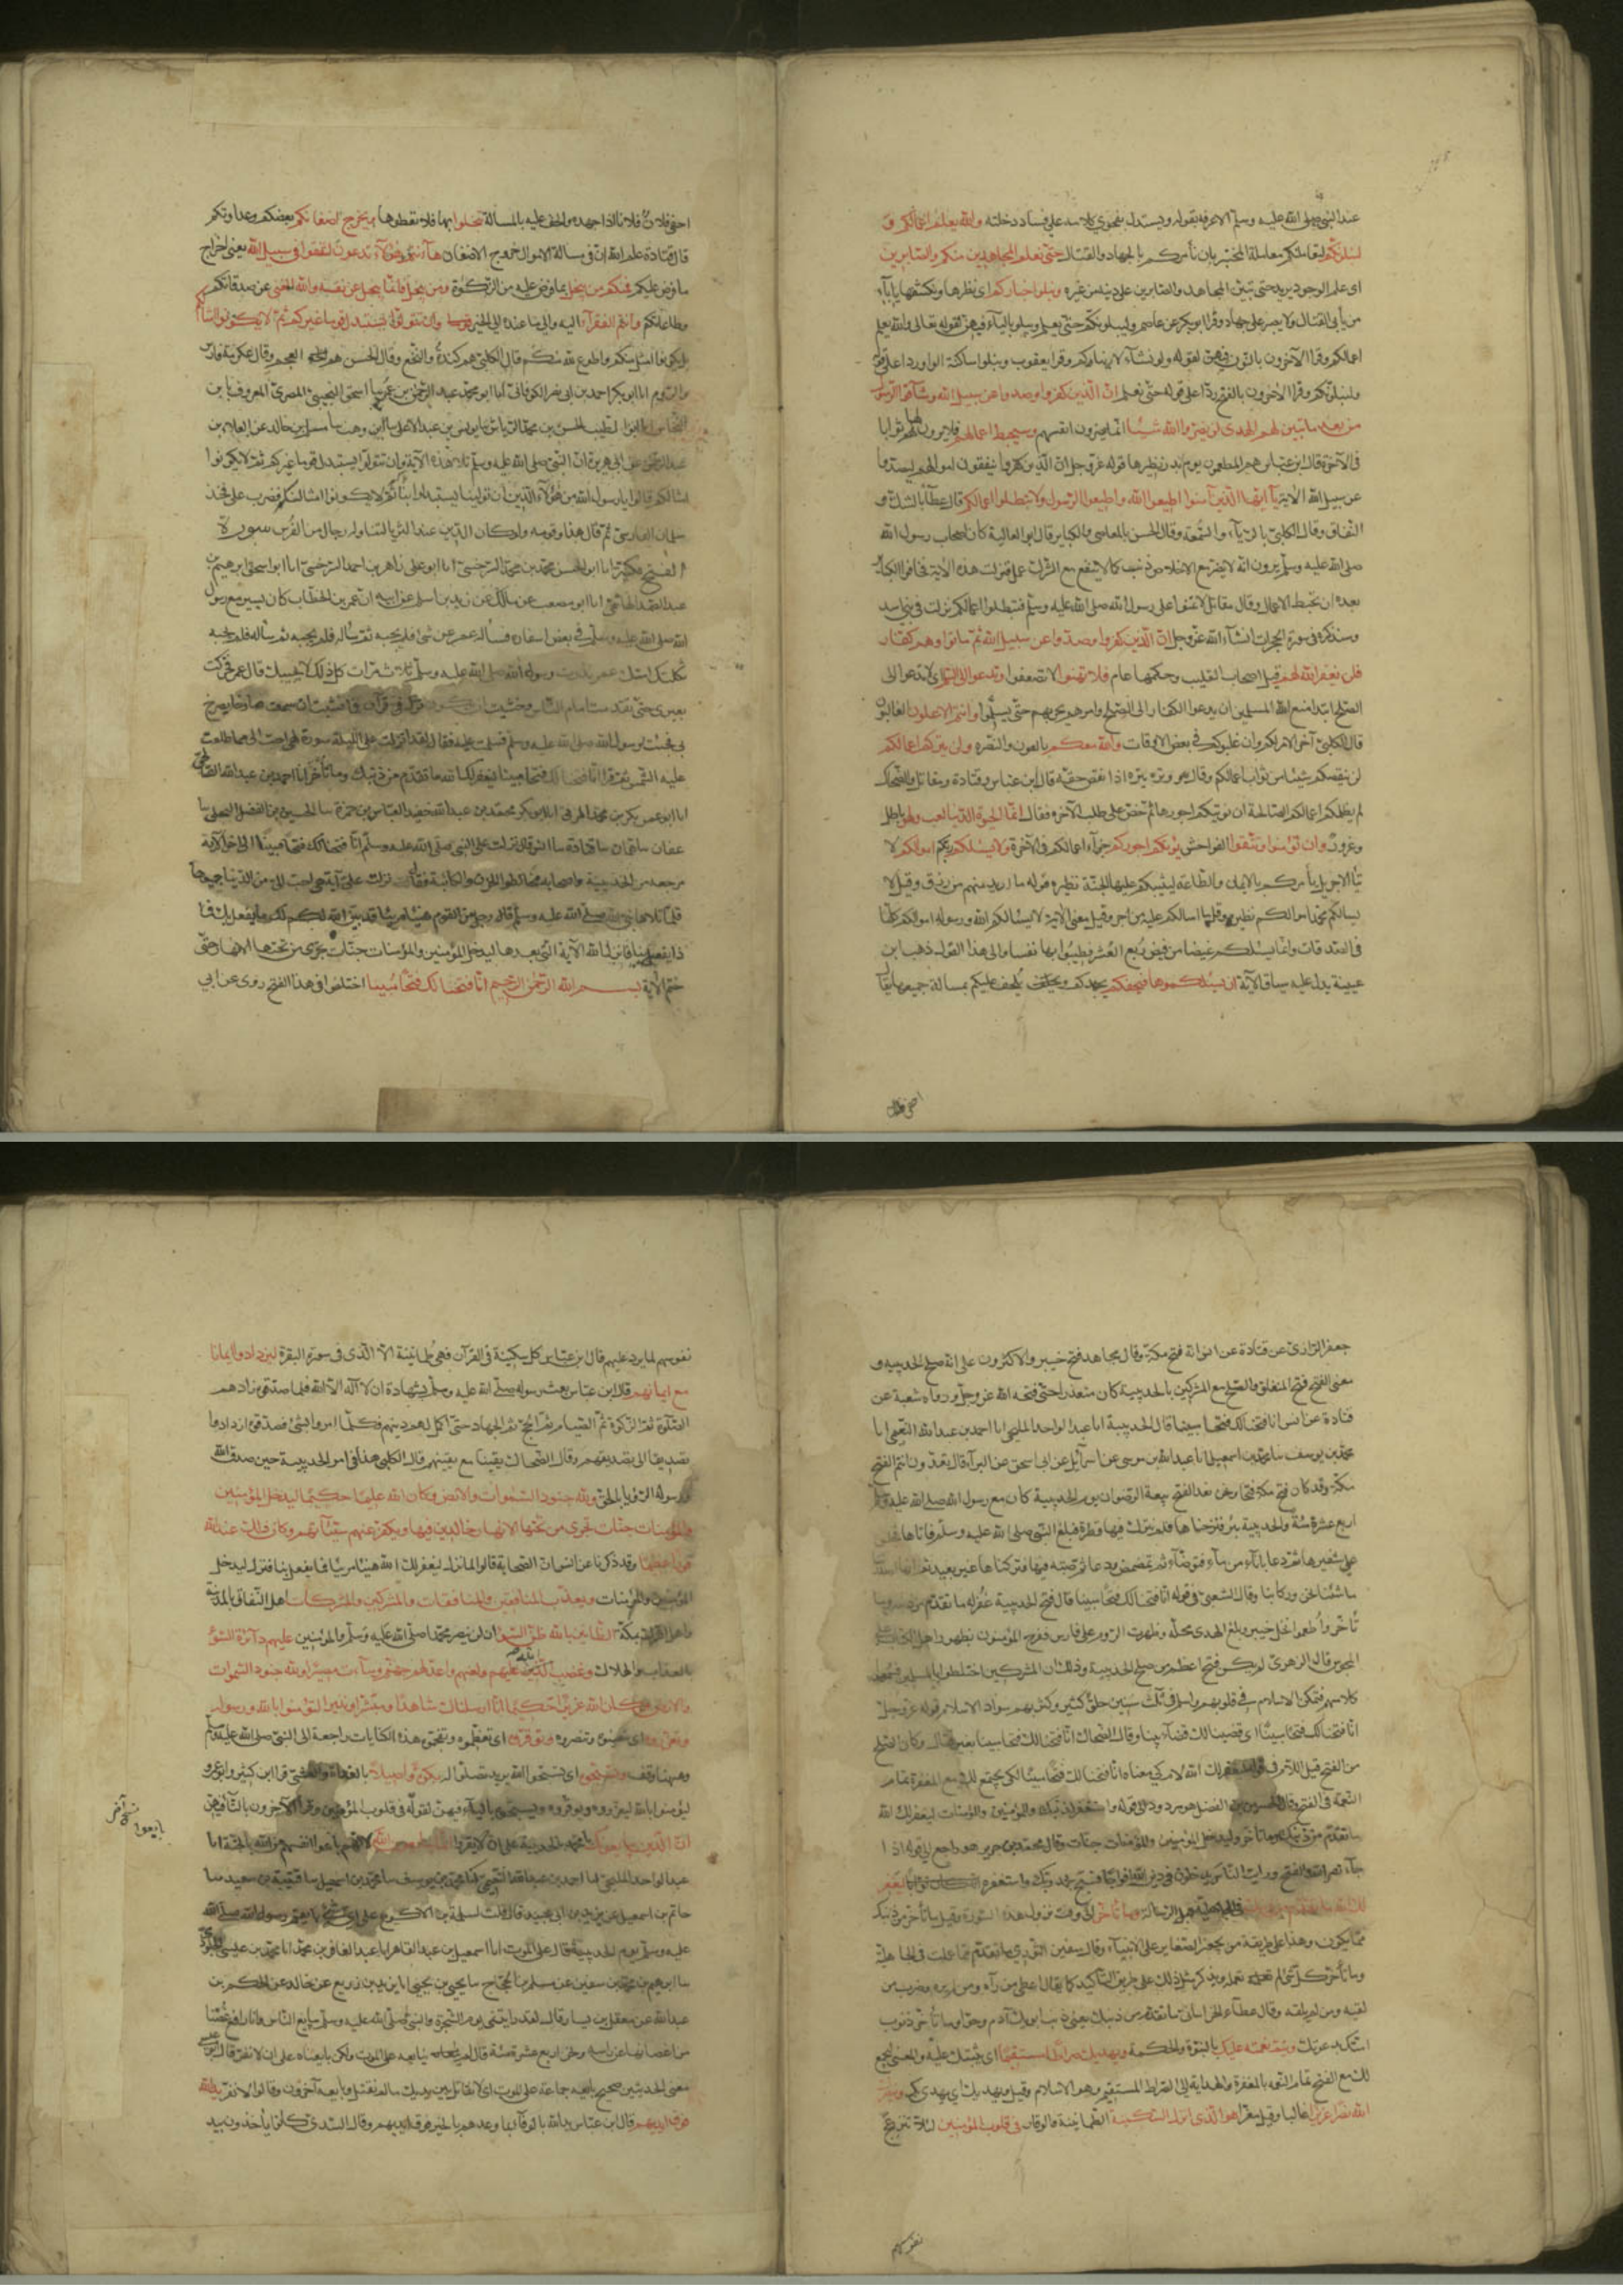 عند النبي صلى الله عليه وسلم الا عرفه بقوله ويستدل بفحوى كلامه على فساد دخلته والله يعلم اعمالكم و
لنبلونكم لنعاملنكم معاملة المختبر بان نأمركم بالجهاد والقتال حتى نعلم المجاهدين منكم والصابرين
اى علم الوجود يريد حتى يتبين المجاهد والصابر على دينه من غيره ونبلوا اخباركم اى نظهرها ونكشفها باباء
من يأبى القتال ولا يصبر على الجهاد وقرا ابو بكر عن عاصم وليبلونكم حتى يعلم ويبلو بالياء فيهن لقوله تعالى والله يعلم
اعمالكم وقرا الآخرون بالنون فيهن لقوله ولو نشاء لاريناكهم وقرا يعقوب ونبلوا ساكنة الواو ردا على قوله
ولنبلونكم وقرا الآخرون بالفتح ردا على قوله حتى نعلم ان الذين كفروا وصدوا عن سبيل الله وشاقوا الرسول
من بعد ما تبين لهم الهدى لن يضروا الله شيئا انما يضرون انفسهم وسيحبط اعمالهم فلا يرون لها ثوابا
فى الآخرة قال ابن عباس هم المطعمون يوم بدر نظيرها قوله عز وجل ان الذين كفروا ينفقون اموالهم ليصدوا
عن سبيل الله الآية يا ايها الذين آمنوا اطيعوا الله واطيعوا الرسول ولا تبطلوا اعمالكم قال عطاء بالشك و
النفاق وقال الكلبى بالرياء والسمعة وقال الحسن بالمعاصى والكباير قال ابو العالية كان اصحاب رسول الله
صلى الله عليه وسلم يرون انه لا يضر مع الاخلاص ذنب كما لا ينفع مع الشرك عمل فنزلت هذه الآية فخافوا الكباير
بعده ان تحبط الاعمال وقال مقاتل لا تمنوا على رسول الله صلى الله عليه وسلم فتبطلوا اعمالكم نزلت فى بنى اسد
وسنذكره فى سورة الحجرات انشاء الله عز وجل ان الذين كفروا وصدوا عن سبيل الله ثم ماتوا وهم كفار
فلن يغفر الله لهم قيل اصحاب القليب وحكمها عام فلا تهنوا لا تضعفوا وتدعوا الى السلم اى لا تدعوا الى
الصلح ابتدا منع الله المسلمين ان يدعوا الكفار الى الصلح وامرهم بحربهم حتى يسلموا وانتم الاعلون الغالبون
قال الكلبى آخر الامر لكم وان غلبوكم فى بعض الاوقات والله معكم بالعون والنصره ولن يتركم اعمالكم
لن ينقصكم شيئا من ثواب اعمالكم وقال هو وتره يتره اذا نقص حقه قال ابن عباس وقتادة ومقاتل والضحاك
لم يظلمكم اعمالكم الصالحة ان نوتيكم اجورها ثم حض على طلب الآخره فقال انما الحيوة الدنيا لعب ولهو باطل
وغرور وان تؤمنوا وتتقوا الفواحش يؤتكم اجوركم جزاء اعمالكم فى الآخرة ولا يسئلكم ربكم اموالكم لا
يتاء الاجر بل يأمركم بالايمان والطاعة ليثيبكم عليها الجنة نظيره قوله ما اريد منهم من رزق وقيل لا
يسالكم محمد اموالكم نظيره قل ما اسالكم عليه من اجر وقيل معنى الآية لا يسالكم الله ورسوله اموالكم كلها
فى الصدقات وانما يسئلكم غيضا من فيض ربع العشر فطيبوا بها نفسا والى هذا القول ذهب ابن
عيينة يدل عليه سياق الآية ان يسئلكموها فيحفكم يجهدكم ويلحف عليكم بمسالة جميعها يقال
احفى فلان
احفى فلان فلانا اذا جهده والحف عليه بالمسالة تبخلوا بها فلا تعطوها ويخرج اضغانكم بغضكم وعداوتكم
قال قتادة علم الله ان فى مسالة الاموال خروج الاضغان ها انتم هؤلاء تدعون لتنفقوا فى سبيل الله يعنى اخراج
ما فرض عليكم فمنكم من يبخل بما فرض عليه من الزكوة ومن يبخل فانما يبخل عن نفسه والله الغنى عن صدقاتكم
وطاعتكم وانتم الفقراء اليه والى ما عنده من الخير وان تتولوا يستبدل قوما غيركم ثم لا يكونوا امثالكم
بل يكونوا امثل منكم واطوع لله منكم قال الكلبى هم كندة والنخع وقال الحسن هم العجم وقال عكرمة فارس
والروم انا ابو بكر احمد بن ابى نصر الكوفانى انا ابو محمد عبد الرحمن بن عمر بن اسحق التجيبى المصرى المعروف بابن
النحاس انا ابو الطيب الحسن بن محمد الرياش نا يونس بن عبد الاعلى نا ابن وهب نا مسلم بن خالد عن العلاء بن
عبد الرحمن عن ابيه عن ابى هريرة ان النبى صلى الله عليه وسلم تلا هذه الآية وان تتولوا يستبدل قوما غيركم ثم لا يكونوا
امثالكم قالوا يا رسول الله من هؤلاء الذين ان تولينا يستبدلوا بنا ثم لا يكونوا امثالنا فضرب على فخذ
سلمان الفارسى ثم قال هذا وقومه ولو كان الدين عند الثريا لتناوله رجال من الفرس سورة
الفتح مكية انا ابو الحسن محمد بن محمد السرخسى انا ابو على زاهر بن احمد السرخسى انا ابو اسحق ابرهيم بن
عبد الصمد الهاشمى انا ابو مصعب عن مالك عن زيد بن اسلم عن ابيه ان عمر بن الخطاب كان يسير مع رسول
الله صلى الله عليه وسلم فى بعض اسفاره فساله عمر عن شئ فلم يجبه ثم ساله فلم يجبه ثم ساله فلم يجبه
ثكلتك امك عمر رسول الله صلى الله عليه وسلم ثلاث مرات كل ذلك لا يجيبك قال عمر فحركت
بعيرى حتى تقدمت امام الناس وخشيت ان يكون نزل فى قرآن فما نشبت ان سمعت صارخا يصرخ
بى فجئت رسول الله صلى الله عليه وسلم فسلمت عليه فقال لقد انزلت على الليلة سورة لهى احب الى مما طلعت
عليه الشمس ثم قرا انا فتحنا لك فتحا مبينا ليغفر لك الله ما تقدم من ذنبك وما تأخر انا احمد بن عبد الله الصالحى
انا ابو عمر بكر بن محمد المزنى انا ابو بكر محمد بن عبد الله حفيد العباس بن حمزة نا الحسين بن الفضل البجلى نا
عفان نا همام نا قتادة نا انس قال نزلت على النبى صلى الله عليه وسلم انا فتحنا لك فتحا مبينا الى آخر الآية
مرجعه من الحديبية واصحابه مخالطوا الحزن والكآبة فقال نزلت على آية هى احب الى من الدنيا جميعها
فلما تلاها نبى الله صلى الله عليه وسلم قال رجل من القوم هنيئا مريئا قد بين الله لك ما يفعل بك فما
ذا يفعل بنا فانزل الله الآية التى بعدها ليدخل المؤمنين والمؤمنات جنات تجرى من تحتها الانهار حتى
ختم الآية بسم الله الرحمن الرحيم انا فتحنا لك فتحا مبينا اختلفوا فى هذا الفتح روى عن ابى
جعفر الرازى عن قتادة عن انس انه فتح مكة وقال مجاهد فتح خيبر والاكثرون على انه صلح الحديبيه و
معنى الفتح فتح المنغلق والصلح مع المشركين بالحديبية كان متعذرا حتى فتحه الله عز وجل ورواه شعبة عن
قتادة عن انس انا فتحنا لك فتحا مبينا قال الحديبية انا عبد الواحد المليحى انا احمد بن عبد الله النعيمى انا
محمد بن يوسف نا محمد بن اسمعيل نا عبيد الله بن موسى عن اسرائيل عن ابى اسحق عن البراء قال تعدون انتم الفتح
مكة وقد كان فتح مكة فتحا ونحن نعد الفتح بيعة الرضوان يوم الحديبية كنا مع رسول الله صلى الله عليه وسلم
اربع عشرة مئة والحديبية بئر فنزحناها فلم نترك فيها قطرة فبلغ النبى صلى الله عليه وسلم فاتاها فجلس
على شفيرها ثم دعا باناء من ماء فتوضاء ثم تمضمض ودعا ثم صبه فيها فتركناها غير بعيد ثم
ما شئنا نحن وركابنا وقال الشعبى فى قوله انا فتحنا لك فتحا مبينا قال فتح الحديبية غفر له ما تقدم من ذنبه وما
تأخر واطعموا نخل خيبر وبلغ الهدى محله وظهرت الروم على فارس ففرح المؤمنون بظهور اهل الكتاب على
المجوس قال الزهرى لم يكن فتح اعظم من صلح الحديبية وذلك ان المشركين اختلطوا بالمسلمين فسمعوا
كلامهم فتمكن الاسلام فى قلوبهم واسلم فى ثلث سنين خلق كثير وكثر بهم سواد الاسلام قوله عز وجل
انا فتحنا لك فتحا مبينا اى قضينا لك قضاء بينا وقال الضحاك انا فتحنا لك فتحا مبينا بغير قتال وكان الصلح
من الفتح قيل اللام فى قوله ليغفر لك الله لام كى معناه انا فتحنا لك فتحا مبينا لكى يجتمع لك مع المغفرة تمام
النعمة فى الفتح وقال الحسين بن الفضل هو مردود الى قوله واستغفر لذنبك وللمؤمنين والمؤمنات ليغفر لك الله
ما تقدم من ذنبك وما تأخر وليدخل المؤمنين والمؤمنات جنات وقال محمد بن جرير هو راجع الى قوله اذا
جاء نصر الله والفتح ورايت الناس يدخلون فى دين الله افواجا فسبح بحمد ربك واستغفره ليغفر
لك الله ما تقدم من ذنبك فى الجاهلية قبل الرسالة وما تأخر الى وقت نزول هذه السورة وقيل ما تأخر من ذنبك
مما يكون وهذا على طريقة من يجوز الصغاير على الانبياء وقال سفين الثورى ما تقدم مما عملت فى الجاهلية
وما تأخر كل شئ لم تعمله ويذكر مثل ذلك على طريق التأكيد كما يقال اعطى من رآه ومن لم يره وضرب من
لقيه ومن لم يلقه وقال عطاء الخراسانى ما تقدم من ذنبك يعنى ذنب ابويك آدم وحوا وما تأخر ذنوب
امتك بدعوتك ويتم نعمته عليك بالنبوة والحكمة ويهديك صراطا مستقيما اى يثبتك عليه والمعنى ليجمع
لك مع الفتح تمام النعمة بالمغفرة والهداية الى الصراط المستقيم وهو الاسلام وقيل ويهديك اى يهدى بك وينصرك
الله نصرا عزيزا غالبا وقيل معزا هو الذى انزل السكينة الطمانينة والوقار فى قلوب المؤمنين لئلا تنزعج
نفوسهم
نفوسهم لما يرد عليهم قال ابن عباس كل سكينة فى القرآن فهى طمانينة الا الذى فى سورة البقرة ليزدادوا ايمانا
مع ايمانهم قال ابن عباس بعث رسوله صلى الله عليه وسلم بشهادة ان لا اله الا الله فلما صدقوه زادهم
الصلوة ثم الزكوة ثم الصيام ثم الحج ثم الجهاد حتى اكمل لهم دينهم فكلما امروا بشئ فصدقوه ازدادوا
تصديقا الى تصديقهم وقال الضحاك يقينا مع يقينهم قال الكلبى هذا فى امر الحديبية حين صدق الله
رسوله الرؤيا بالحق ولله جنود السموات والارض وكان الله عليما حكيما ليدخل المؤمنين
والمؤمنات جنات تجرى من تحتها الانهار خالدين فيها ويكفر عنهم سيئاتهم وكان ذلك عند الله
فوزا عظيما وقد ذكرنا عن انس ان الصحابة قالوا لما نزل ليغفر لك الله هنيئا مريئا فما يفعل بنا فنزل ليدخل
المؤمنين والمؤمنات ويعذب المنافقين والمنافقات والمشركين والمشركات اهل النفاق بالمدينة
واهل الشرك بمكة الظانين بالله ظن السوء ان لن ينصر محمدا صلى الله عليه وسلم والمؤمنين عليهم دآئرة السوء
بالعذاب والهلاك وغضب الله عليهم ولعنهم واعد لهم جهنم وساءت مصيرا ولله جنود السموات
والارض وكان الله عزيزا حكيما انا ارسلناك شاهدا ومبشرا ونذيرا لتؤمنوا بالله ورسوله
وتعزروه اى تعينوه وتنصروه وتوقروه اى تعظموه وتفخموه هذه الكنايات راجعة الى النبى صلى الله عليه وسلم
وههنا وقف وتسبحوه اى تسبحوا الله يريد تصلوا له بكرة واصيلا بالغداة والعشى قرا ابن كثير وابو عمرو
ليؤمنوا بالله ليعزروه ويوقروه ويسبحوه بالياء فيهن لقوله فى قلوب المؤمنين وقرا الآخرون بالتاء فيهن
ان الذين يبايعونك يا محمد بالحديبية على ان لا يفروا انما يبايعون الله لانهم باعوا انفسهم من الله بالجنة انا
عبد الواحد المليحى انا احمد بن عبد الله النعيمى انا محمد بن يوسف نا محمد بن اسمعيل نا قتيبة بن سعيد نا
حاتم بن اسمعيل عن يزيد بن ابى عبيد قال قلت لسلمة بن الاكوع على اى شئ بايعتم رسول الله صلى الله
عليه وسلم يوم الحديبية قال على الموت انا اسمعيل بن عبد القاهر انا عبد الغافر بن محمد انا محمد بن عيسى الجلودى
نا ابرهيم بن محمد بن سفين عن مسلم بن الحجاج نا يحيى بن يحيى انا يزيد بن زريع عن خالد عن الحكم بن
عبد الله عن معقل بن يسار قال لقد رايتنى يوم الشجرة والنبى صلى الله عليه وسلم يبايع الناس وانا رافع غصنا
من اغصانها عن راسه ونحن اربع عشرة مئة قال لم نبايعه على الموت ولكن بايعناه على ان لا نفر قال ابو عيسى
معنى الحديثين صحيح بايعه جماعة على الموت اى لا نزال نقاتل بين يديك ما لم نقتل وبايعه آخرون وقالوا لا نفر يد الله
فوق ايديهم قال ابن عباس يد الله بالوفاء بما وعدهم بالخير فوق ايديهم وقال السدى كانوا يأخذون بيد
بايعوا نسخة آخر